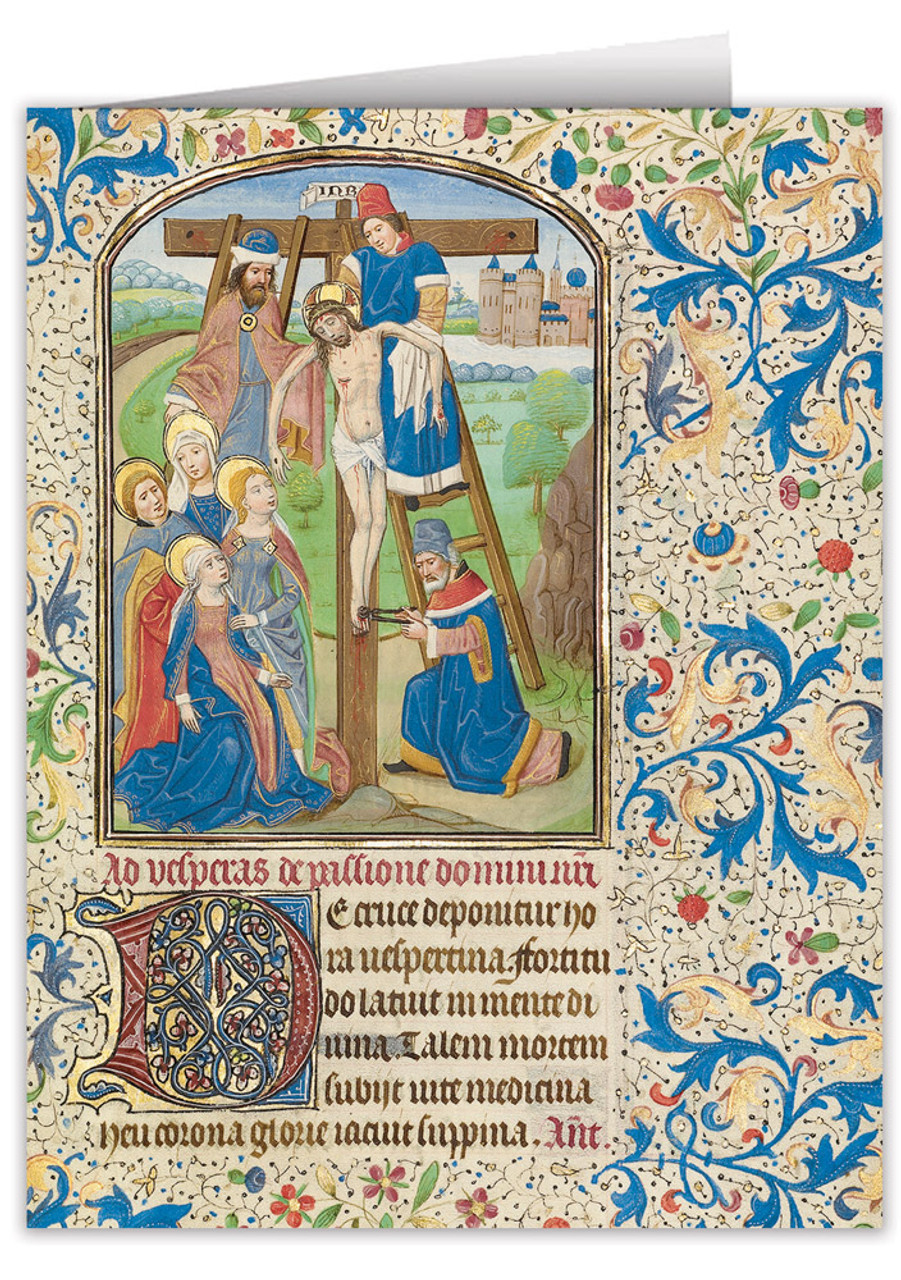 INR
Ad vesperas de passione domini nr̄i
De cruce deponitur ho
ra vespertina. ffortitu
do latuit in mente di
uina Talem mortem
subijt uite medicina
heu corona glorie iacuit suppina. Añt.